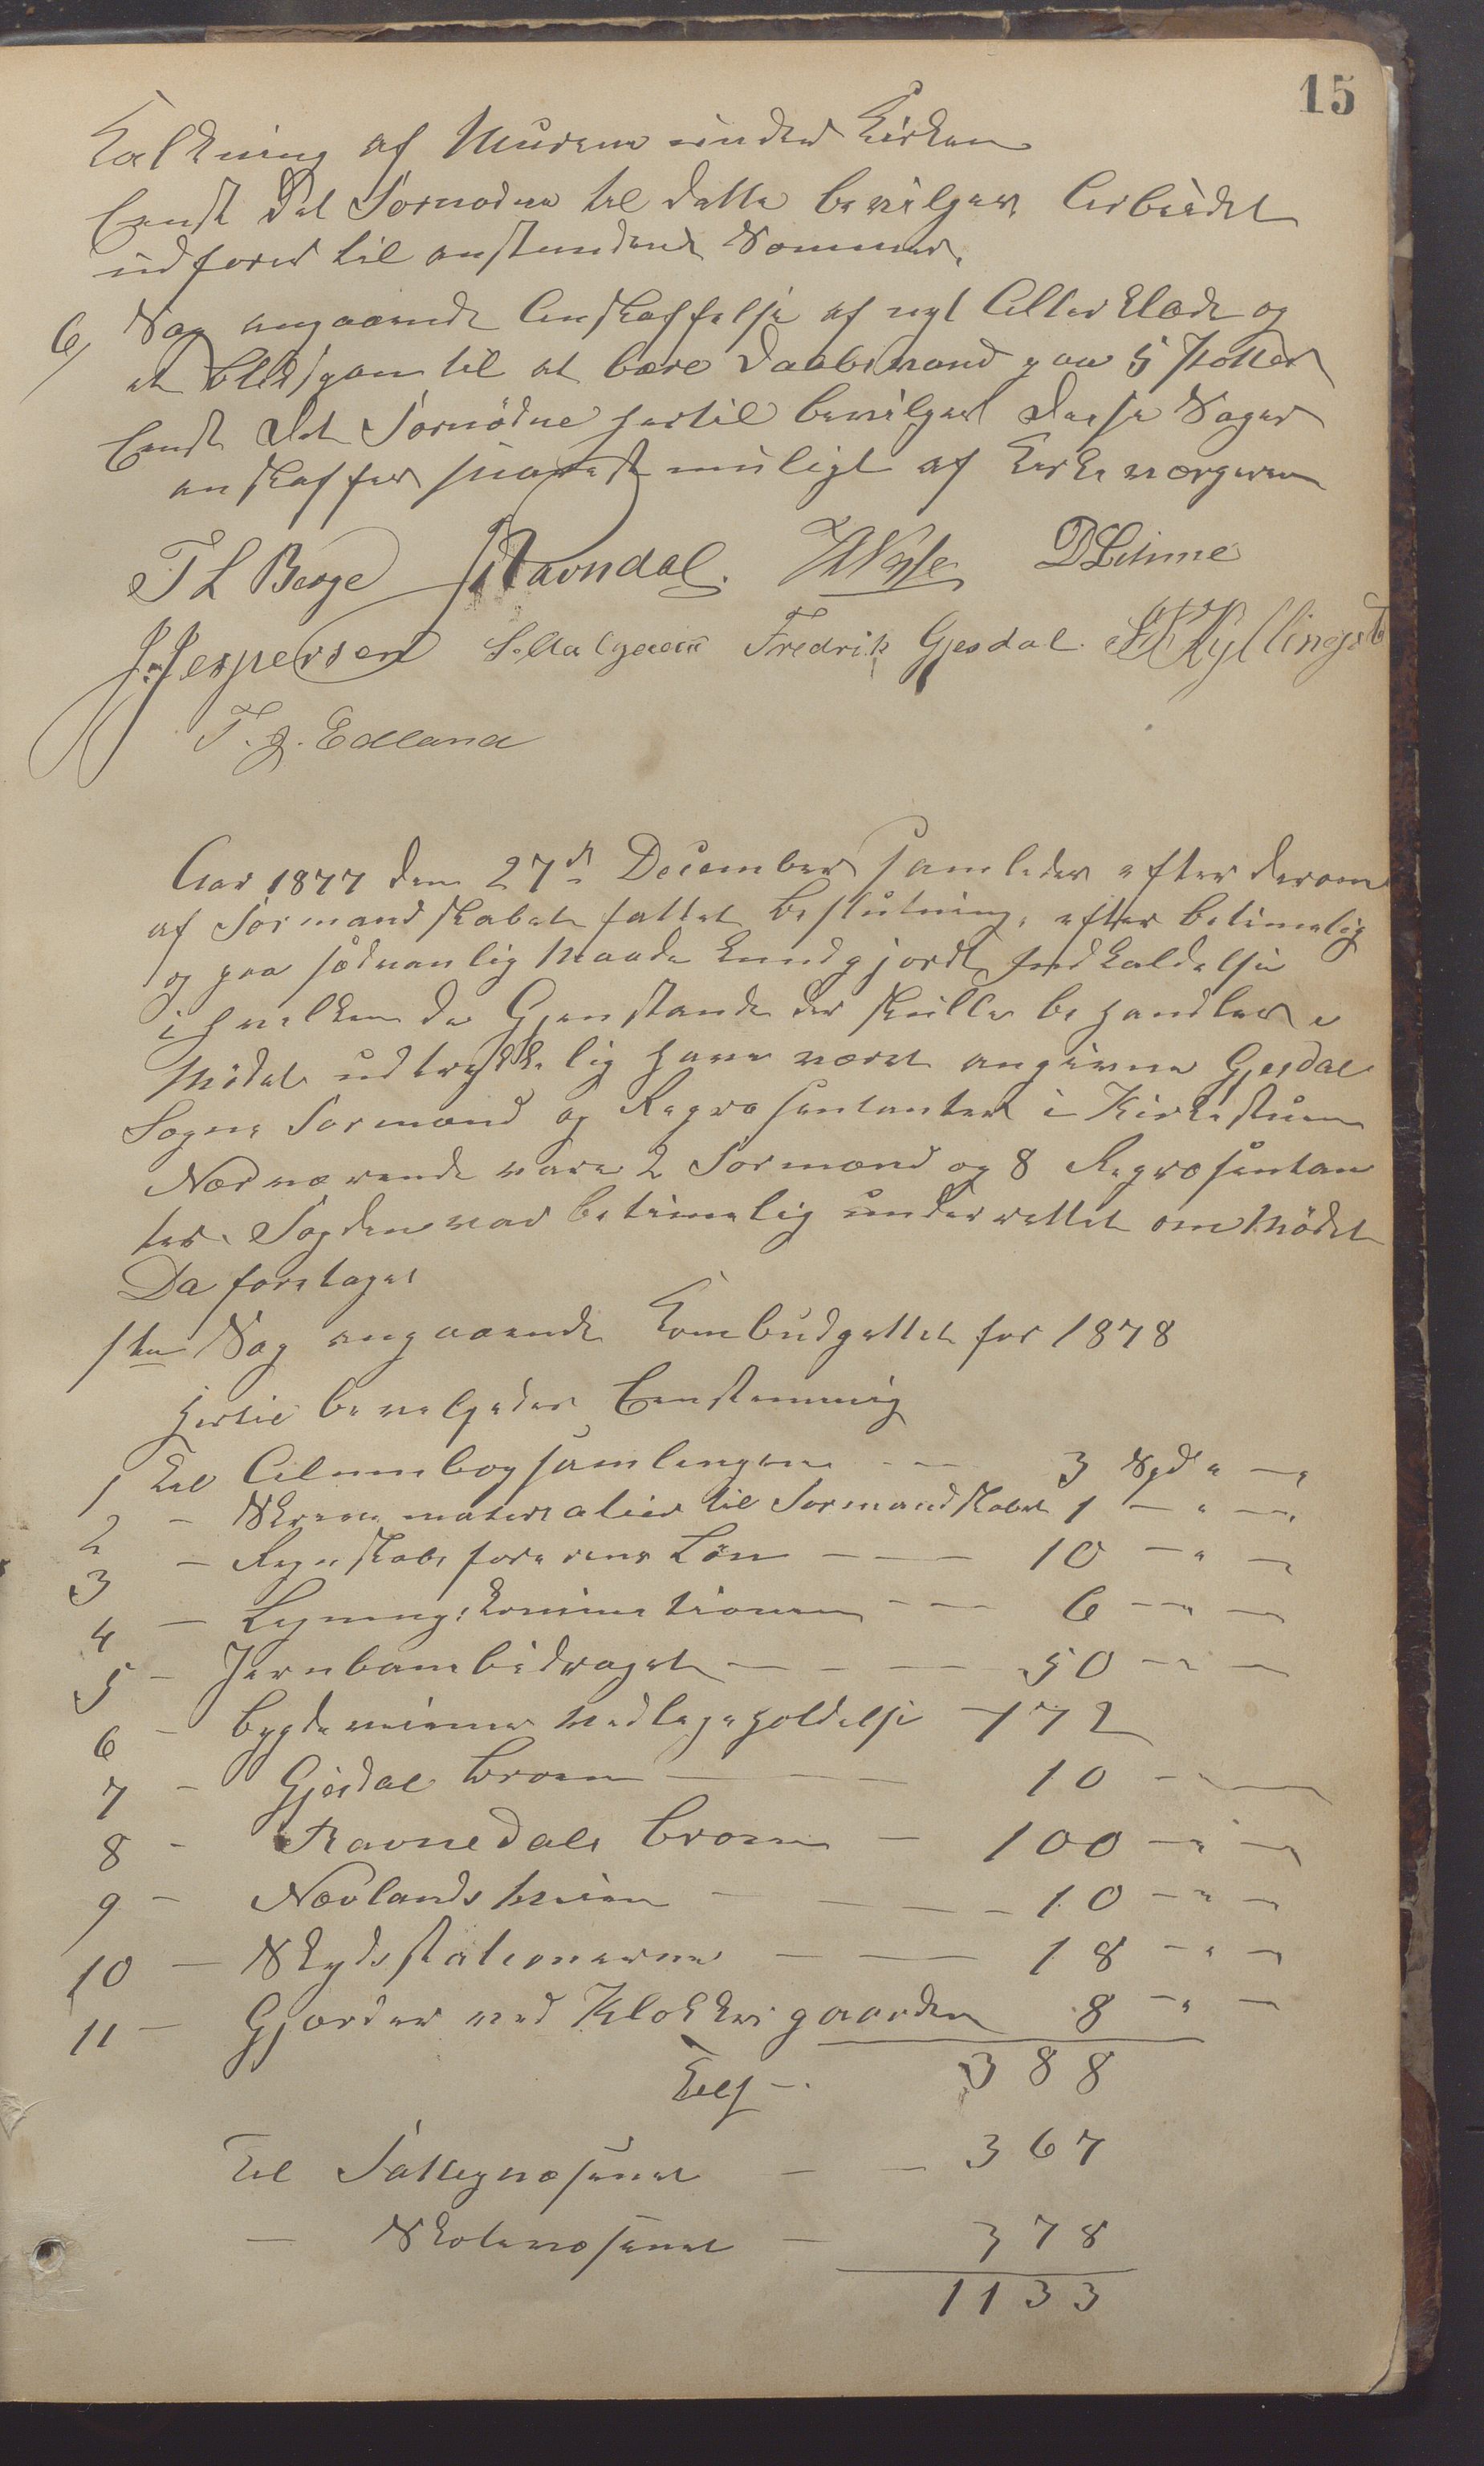 15
Kalkning af Murene under Kirken
Eenst Det Fornødne til dette bevilges Arbeidet
udføres til anstundende Sommer.
6/ Sag angaaende Anskaffelse af nyt Alterklæde og
et til at bære Daabsvand paa 5 Potter
Eenst Det Fornødne hertil bevilges disse Sager
anskaffes snarest muligt af Kirkeværgeren
T L Berge Ravndal. D Limme
J. Jespersen Fredrik Gjesdal. Kyllingst
T. J. Edland
Aar 1877 den 27de December samledes efter derom
af Formandskabet fattet Beslutning, efter betimelig
og paa sædvanlig Maade kundgjordt Indkaldelse
i hvilken de Gjenstande der skulle behandles i
Mødet udtrykkelig have været angivne Gjesdal
Sogns Formænd og Repræsentanter i Kirkestuen
Nærværende vare 2 Formænd og 8 Repræsentan
ter. Fogden var betimelig underrettet om Mødet
Da foretages
1ste Sag angaaende Kombudgettet for 1878
Hertil bevilgedes Eenstemmig
1 Til Almuebogsamlingen - - 3 Spd " - "
2 - Skrivematerialier til Formandskabet 1 - " -
3 - Regnskabsførerens Løn - - - 10 - " -
4 - Ligningskommisionen - - - 6 - " -
5 - Jernbanebidraget - - - 50 - " -
6 - Bygdeveienes Vedligeholdelse - 172
7 - Gjesdal Broen - - - 10 -
8 - Ravnedals Broen - 100 - " -
9 - Nævlandsveien - - - - 10 - " -
10 - Skydsstationerne - - - 18 - " -
11 - Gjærder ved Klokkergaarden 8 - " -
388
Til Fattigvæsenet - - 367
- Skolevæsenet - 378
1133